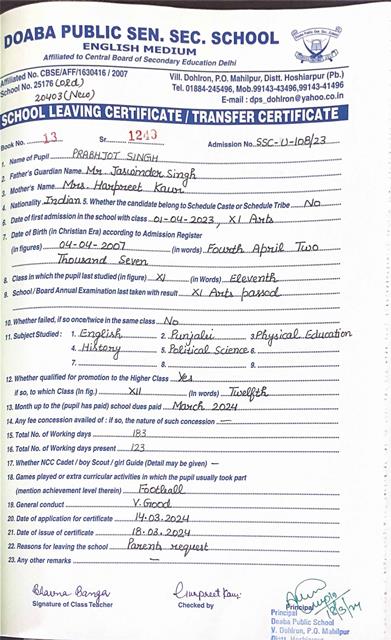 DOABA PUBLIC SEN. SEC. SCHOOL
ENGLISH MEDIUM
Affiliated to Central Board of Secondary Education Delhi
Affiliated No. CBSE/AFF/1630416 / 2007
School No. 25176 (old)
20403 (New)
Vill. Dohlron, P.O. Mahilpur, Distt. Hoshiarpur (Pb.)
Tel. 01884-245496, Mob.99143-43496,99143-41496
E-mail : dps_dohlron@yahoo.co.in
SCHOOL LEAVING CERTIFICATE / TRANSFER CERTIFICATE
Book No. 13 Sr. 1243 Admission No. SSC-U-108/23
1. Name of Pupil PRABHJOT SINGH
2. Father's Guardian Name Mr. Jaswinder Singh
3. Mother's Name Mrs. Harpreet Kaur
4. Nationality Indian 5. Whether the candidate belong to Schedule Caste or Schedule Tribe No
6. Date of first admission in the school with class 01-04-2023, XI Arts
7. Date of Birth (in Christian Era) according to Admission Register
(in figures) 04-04-2007 (in words) Fourth April Two
Thousand Seven
8. Class in which the pupil last studied (in figure) XI (in Words) Eleventh
9. School / Board Annual Examination last taken with result XI Arts passed
10. Whether failed, if so once/twice in the same class No
11. Subject Studied : 1. English 2. Punjabi 3. Physical Education
4. History 5. Political Science 6.
7. 8. 9.
12. Whether qualified for promotion to the Higher Class Yes
if so, to which Class (In fig.) XII (In words) Twelfth
13. Month up to the (pupil has paid) school dues paid March 2024
14. Any fee concession availed of : if so, the nature of such concession —
15. Total No. of Working days 183
16. Total No. of Working days present 123
17. Whether NCC Cadet / boy Scout / girl Guide (Detail may be given) —
18. Games played or extra curricular activities in which the pupil usually took part
(mention achievement level therein) Football
19. General conduct V. Good
20. Date of application for certificate 14.03.2024
21. Date of issue of certificate 18.03.2024
22. Reasons for leaving the school Parents request
23. Any other remarks —
Bhavna Banga
Signature of Class Teacher
Gurpreet Kaur
Checked by
Principal
18/3/24
Principal
Doaba Public School
V. Dohlron, P.O. Mahilpur
Distt. Hoshiarpur